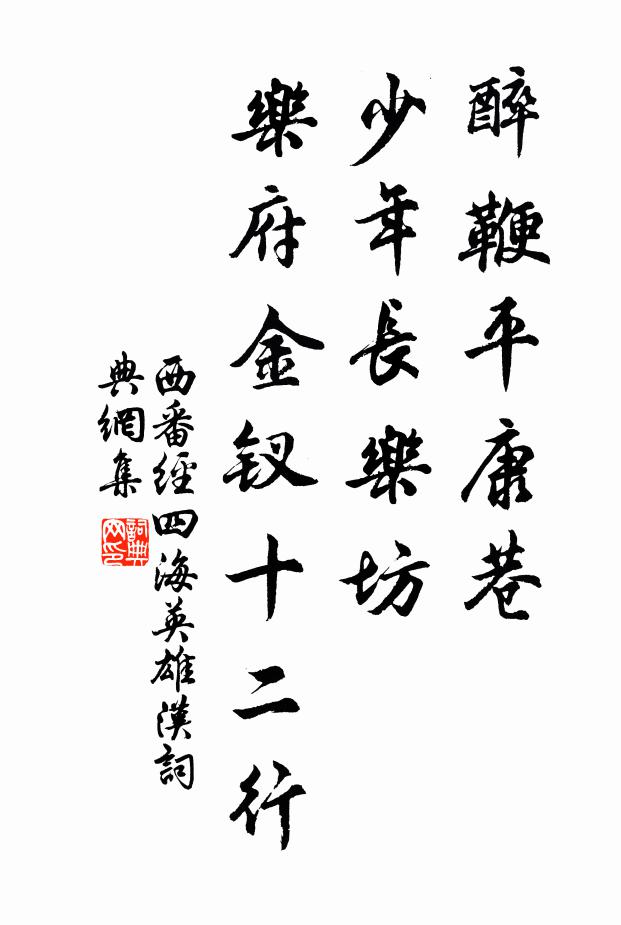 醉鞭平康巷
少年長樂坊
樂府金釵十二行
西番經四海英雄漢詞
典網集
詞典
网印